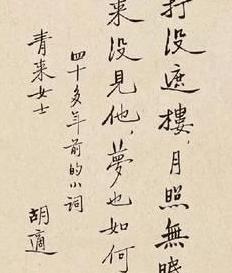 打没遮樓，月照無眠
来没見他，夢也如何
四十多年前的小词
青来女士
胡適